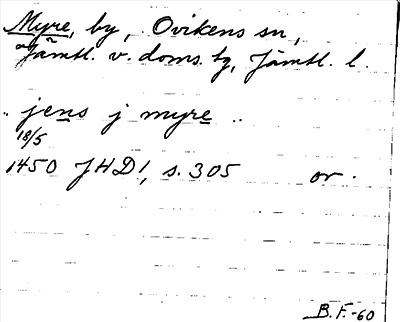 Myre, by, Ovikens sn,
Jämtl. v. doms. tg, Jämtl. l.
.. jens j myre ..
18/5
1450 JHD 1, s. 305 or.
B.F.-60